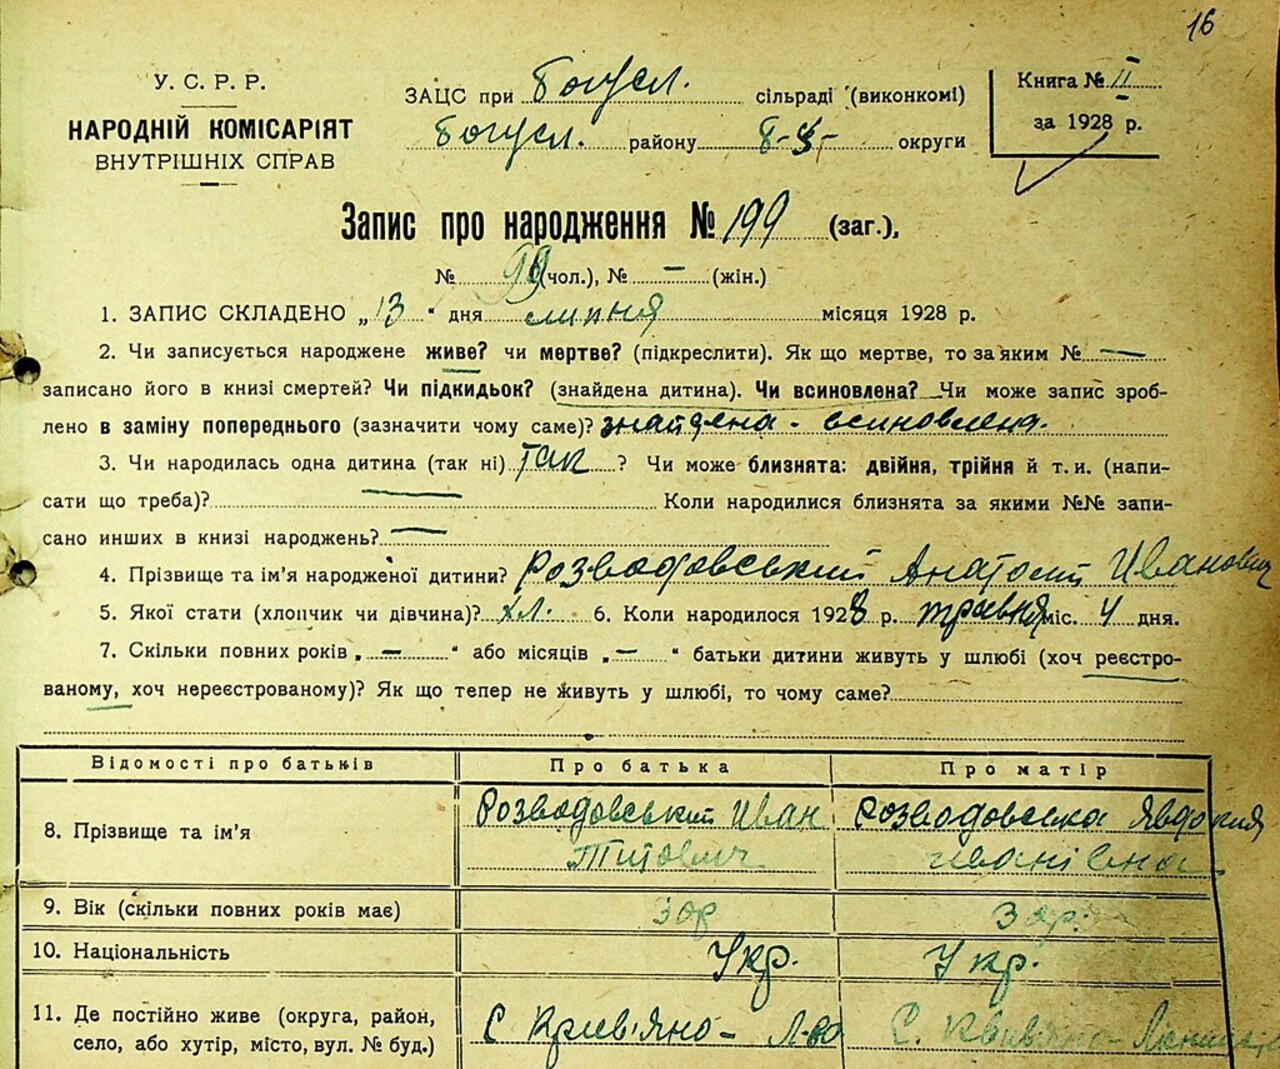 16
У. С. Р. Р.
НАРОДНІЙ КОМІСАРІЯТ
ВНУТРІШНІХ СПРАВ
ЗАЦС при Богусл. сільраді (виконкомі)
Богусл. району Б-Ц- округи
Книга № II
за 1928 р.
Запис про народження № 199 (заг.),
№ 99 (чол.), № — (жін.)
1. ЗАПИС СКЛАДЕНО „13" дня липня місяця 1928 р.
2. Чи записується народжене живе? чи мертве? (підкреслити). Як що мертве, то за яким № —
записано його в книзі смертей? Чи підкидьок? (знайдена дитина). Чи всиновлена? Чи може запис зроб-
лено в заміну попереднього (зазначити чому саме)? знайдена - всиновлена.
3. Чи народилась одна дитина (так ні) так ? Чи може близнята: двійня, трійня й т. и. (напи-
сати що треба)? — Коли народилися близнята за якими №№ запи-
сано инших в книзі народжень? —
4. Прізвище та ім'я народженої дитини? Розводовський Анатолій Иванович
5. Якої стати (хлопчик чи дівчина)? хл. 6. Коли народилося 1928 р. травня міс. 4 дня.
7. Скільки повних років „ — " або місяців „ — " батьки дитини живуть у шлюбі (хоч реєстро-
ваному, хоч нереєстрованому)? Як що тепер не живуть у шлюбі, то чому саме?
Відомості про батьків Про батька Про матір
8. Прізвище та ім'я Розводовський Иван Розводовська Явдокия
Титович Иванівна
9. Вік (скільки повних років має) 30р 30р.
10. Національність Укр. Укр.
11. Де постійно живе (округа, район,
село, або хутір, місто, вул. № буд.)
С. С.